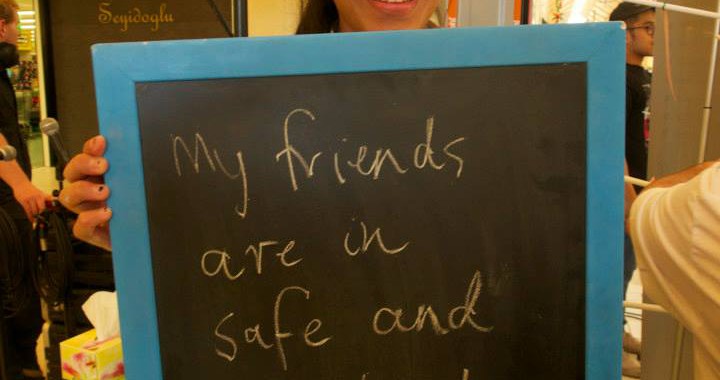 Seyidoglu
My friends
are in
safe and